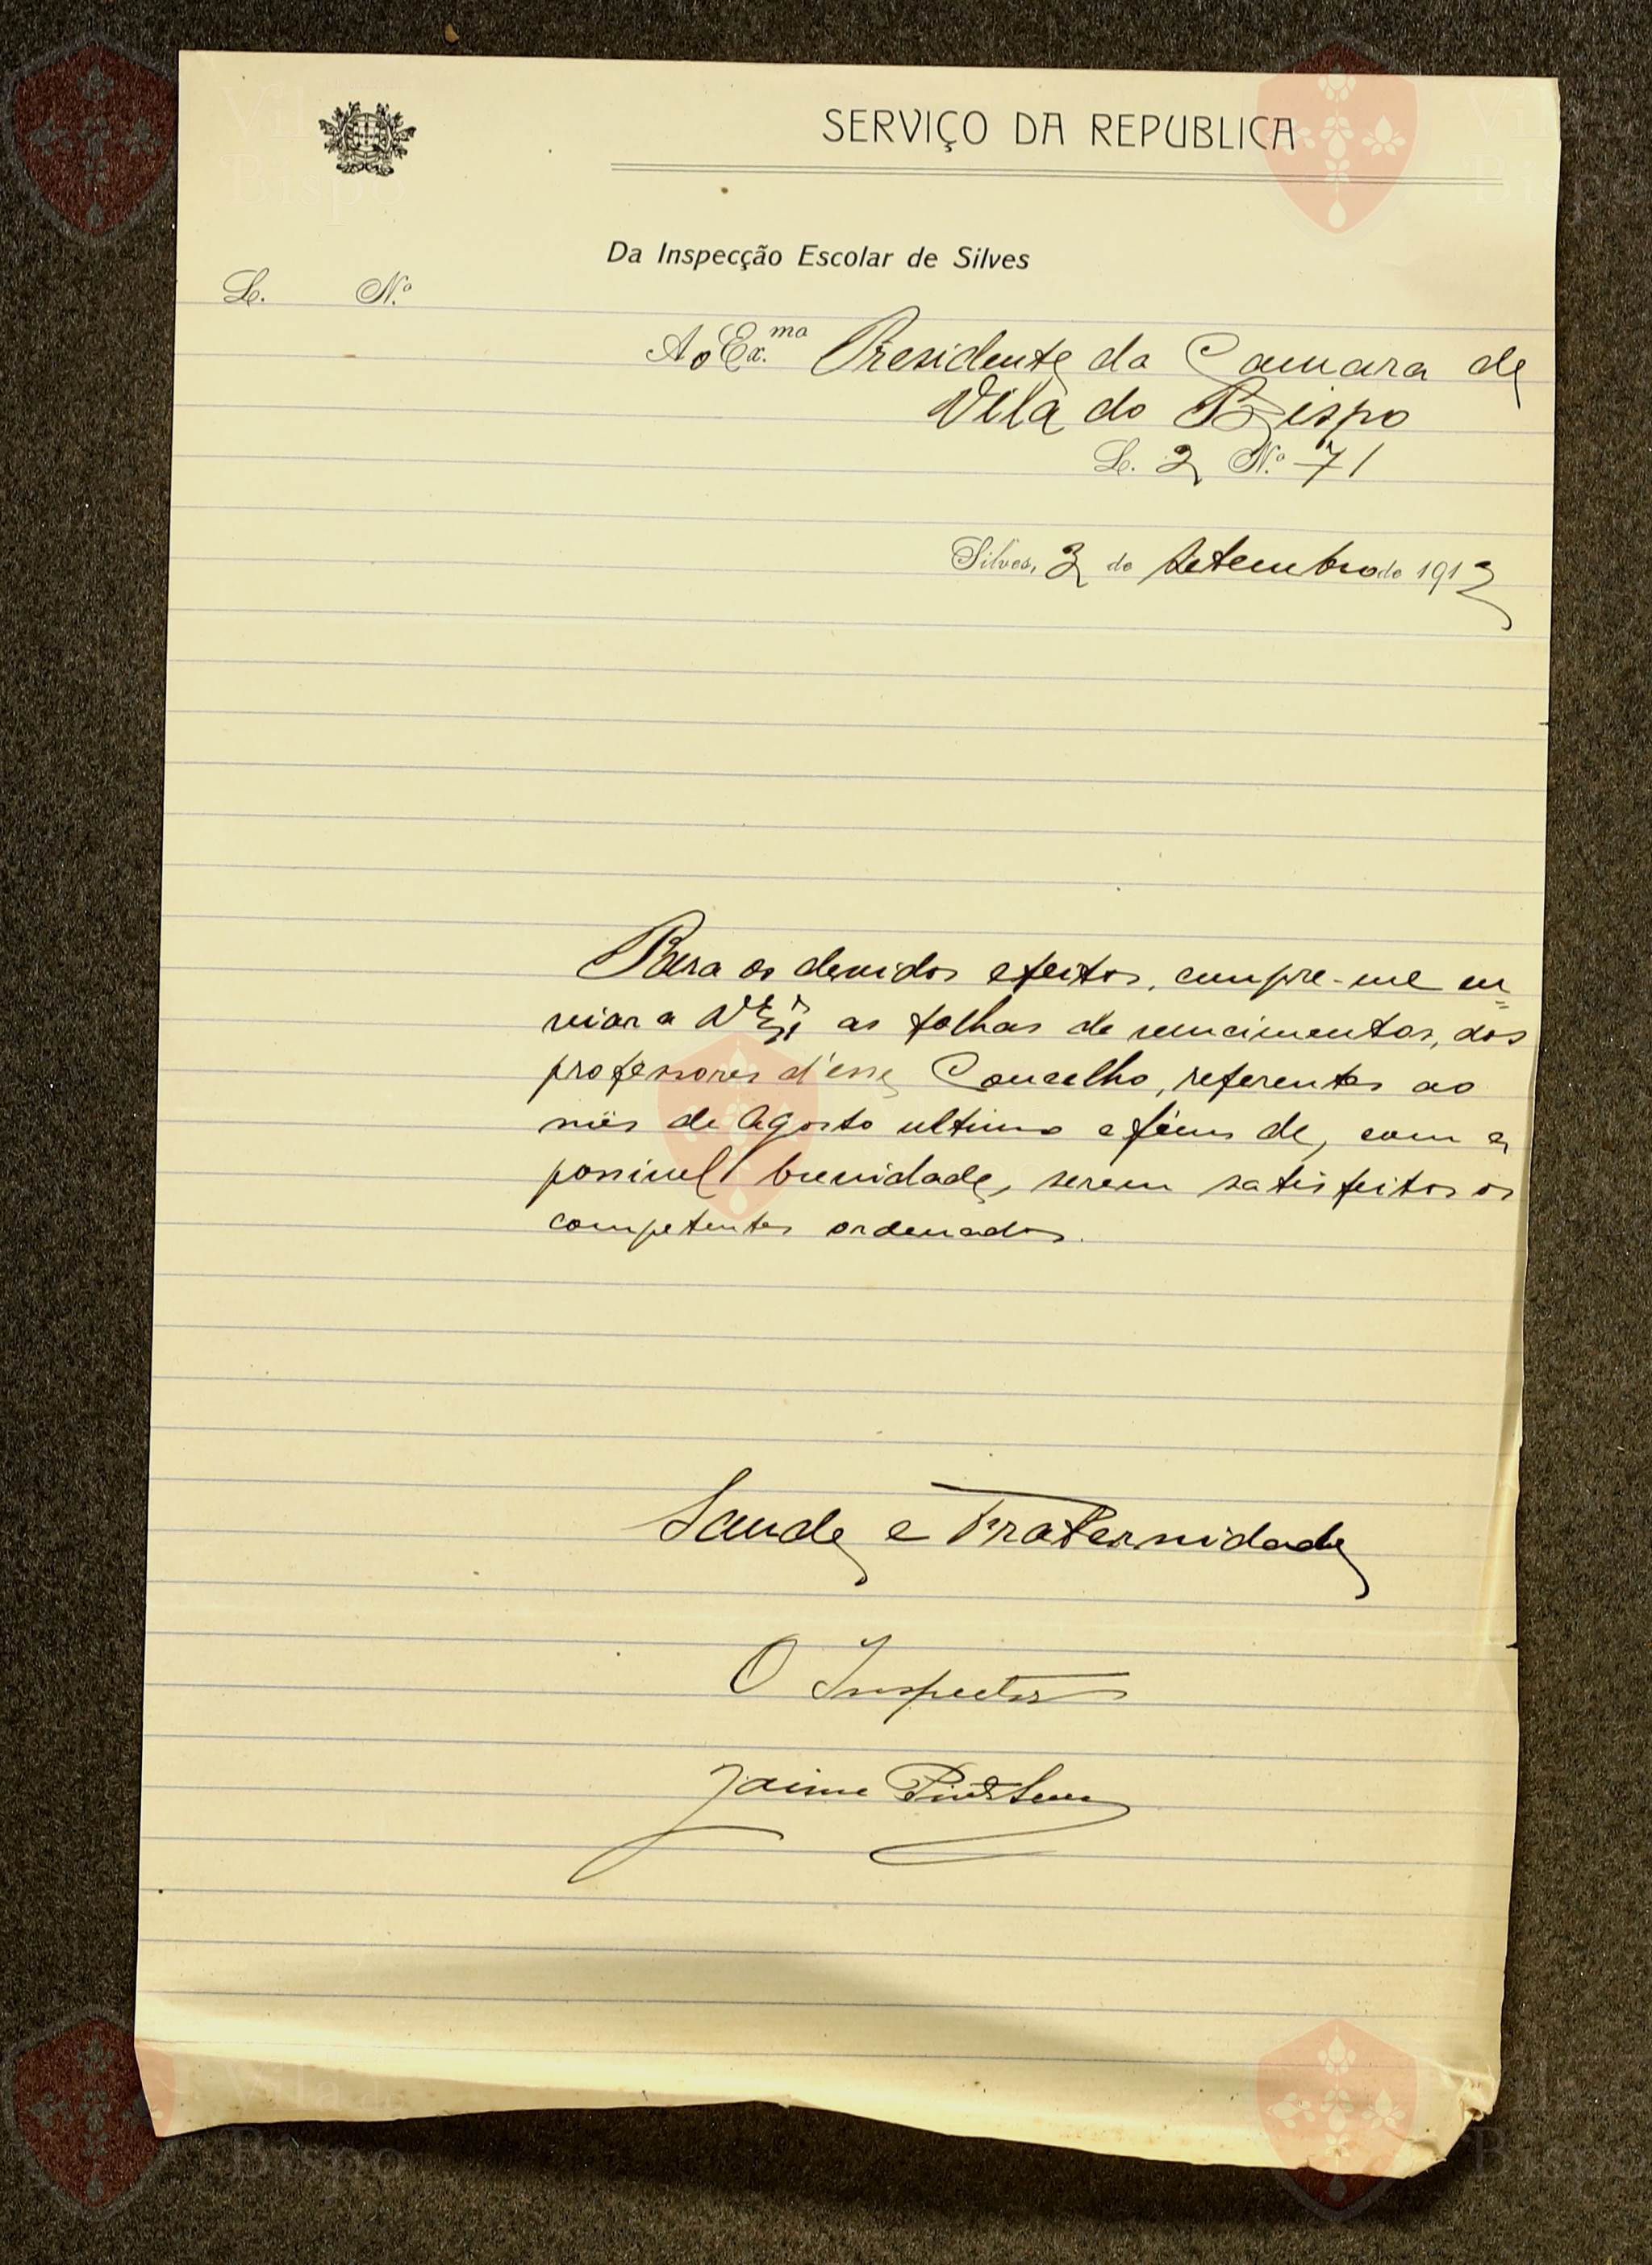 SERVIÇO DA REPUBLICA
Da Inspecção Escolar de Silves
L. N.º
Ao Ex.mo Presidente da Camara de
Vila do Bispo
L. 2 N.º 71
Silves, 2 de Setembro de 1912
Para os devidos efeitos, cumpre-me en=
viar a V. Ex.ª as folhas de vencimentos, dos
professores d'esse Concelho, referentes ao
mês de Agosto ultimo afim de, com a
possivel brevidade, serem satisfeitos os
competentes ordenados.
Saude e Fraternidade
O Inspector
Jaime
Vila do
Bispo